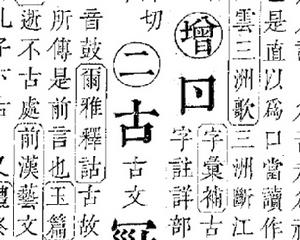 是直以爲口當讀作
雲三洲歌三洲斷江
增
字彙補古
字註詳部
切
二古古文
音鼓爾雅釋詁古故
所傳是前言也玉篇
逝不古處前漢藝文